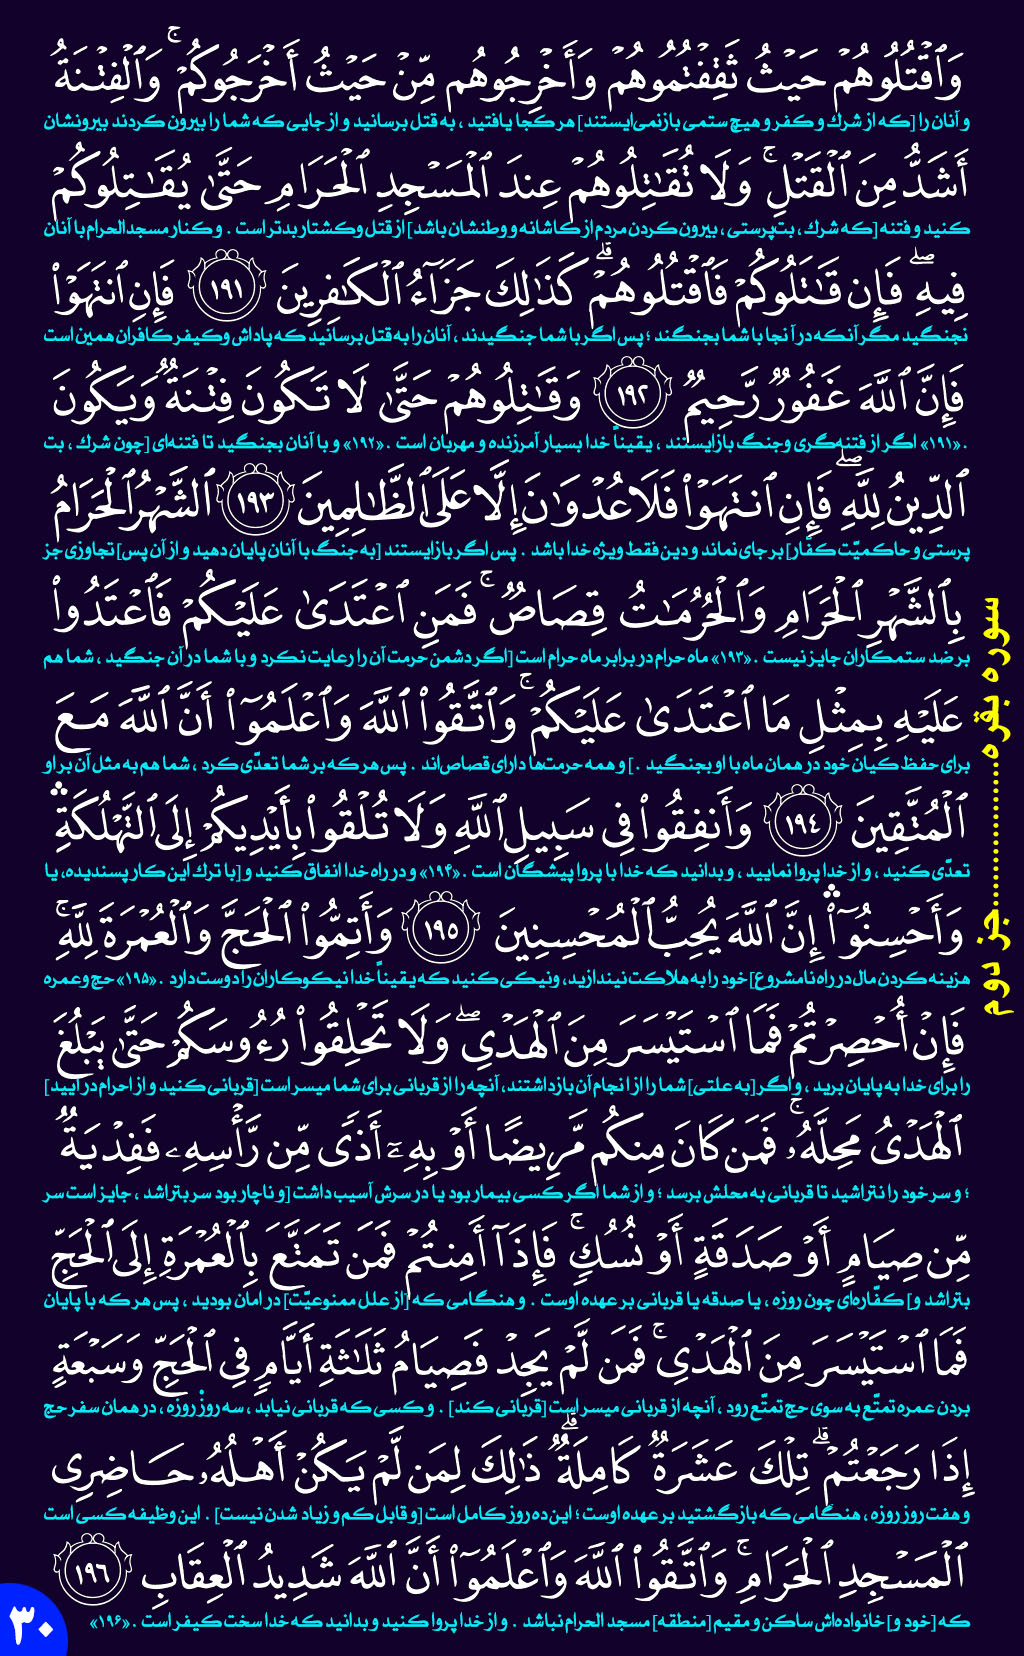 وَٱقۡتُلُوهُمۡ حَيۡثُ ثَقِفۡتُمُوهُمۡ وَأَخۡرِجُوهُم مِّنۡ حَيۡثُ أَخۡرَجُوكُمۡۚ وَٱلۡفِتۡنَةُ
و آنان را [که از شرك و کفر و هیچ ستمی بازنمی‌ایستند] هر کجا یافتید ، به قتل برسانید و از جایی که شما را بیرون کردند بیرونشان
أَشَدُّ مِنَ ٱلۡقَتۡلِۚ وَلَا تُقَٰتِلُوهُمۡ عِندَ ٱلۡمَسۡجِدِ ٱلۡحَرَامِ حَتَّىٰ يُقَٰتِلُوكُمۡ
کنید و فتنه [که شرك ، بت‌پرستی ، بیرون کردن مردم از کاشانه و وطنشان باشد] از قتل وکشتار بدتر است . و کنار مسجدالحرام با آنان
فِيهِۖ فَإِن قَٰتَلُوكُمۡ فَٱقۡتُلُوهُمۡۗ كَذَٰلِكَ جَزَآءُ ٱلۡكَٰفِرِينَ ١٩١ فَإِنِ ٱنتَهَوۡاْ
نجنگید مگر آنکه در آنجا با شما بجنگند ؛ پس اگر با شما جنگیدند ، آنان را به قتل برسانید که پاداش وکیفر کافران همین است
فَإِنَّ ٱللَّهَ غَفُورٞ رَّحِيمٞ ١٩٢ وَقَٰتِلُوهُمۡ حَتَّىٰ لَا تَكُونَ فِتۡنَةٞ وَيَكُونَ
. «۱۹۱» اگر از فتنه‌گری وجنگ بازایستند ، یقیناً خدا بسیار آمرزنده و مهربان است . «۱۹۲» و با آنان بجنگید تا فتنه‌ای [چون شرك ، بت
ٱلدِّينُ لِلَّهِۖ فَإِنِ ٱنتَهَوۡاْ فَلَا عُدۡوَٰنَ إِلَّا عَلَى ٱلظَّٰلِمِينَ ١٩٣ ٱلشَّهۡرُ ٱلۡحَرَامُ
پرستی و حاکمیّت کفّار] بر جای نماند و دین فقط ویژه خدا باشد . پس اگر بازایستند [به جنگ با آنان پایان دهید و از آن پس] تجاوزی جز
بِٱلشَّهۡرِ ٱلۡحَرَامِ وَٱلۡحُرُمَٰتُ قِصَاصٞۚ فَمَنِ ٱعۡتَدَىٰ عَلَيۡكُمۡ فَٱعۡتَدُواْ
بر ضد ستمکاران جایز نیست . «۱۹۳» ماه حرام در برابر ماه حرام است [اگر دشمن حرمت آن را رعایت نکرد و با شما در آن جنگید ، شما هم
عَلَيۡهِ بِمِثۡلِ مَا ٱعۡتَدَىٰ عَلَيۡكُمۡۚ وَٱتَّقُواْ ٱللَّهَ وَٱعۡلَمُوٓاْ أَنَّ ٱللَّهَ مَعَ
برای حفظ کیان خود در همان ماه با او بجنگید . ] و همه حرمت‌ها دارای قصاص‌اند . پس هر که بر شما تعدّی کرد ، شما هم به مثل آن بر او
ٱلۡمُتَّقِينَ ١٩٤ وَأَنفِقُواْ فِي سَبِيلِ ٱللَّهِ وَلَا تُلۡقُواْ بِأَيۡدِيكُمۡ إِلَى ٱلتَّهۡلُكَةِۛ
تعدّی کنید ، و از خدا پروا نمایید ، و بدانید که خدا با پروا پیشگان است . «۱۹۴» و در راه خدا انفاق کنید و [با ترك این کار پسندیده، یا
وَأَحۡسِنُوٓاْۛ إِنَّ ٱللَّهَ يُحِبُّ ٱلۡمُحۡسِنِينَ ١٩٥ وَأَتِمُّواْ ٱلۡحَجَّ وَٱلۡعُمۡرَةَ لِلَّهِۚ
هزینه کردن مال در راه نامشروع] خود را به هلاکت نیندازید، ونیکی کنید که یقیناً خدا نیکوکاران را دوست دارد . «۱۹۵» حج وعمره
فَإِنۡ أُحۡصِرۡتُمۡ فَمَا ٱسۡتَيۡسَرَ مِنَ ٱلۡهَدۡيِۖ وَلَا تَحۡلِقُواْ رُءُوسَكُمۡ حَتَّىٰ يَبۡلُغَ
را برای خدا به پایان برید ، و اگر [به علتی] شما را از انجام آن بازداشتند، آنچه را از قربانی برای شما میسر است [قربانی کنید و از احرام درآیید]
ٱلۡهَدۡيُ مَحِلَّهُۥۚ فَمَن كَانَ مِنكُم مَّرِيضًا أَوۡ بِهِۦٓ أَذٗى مِّن رَّأۡسِهِۦ فَفِدۡيَةٞ
؛ و سر خود را نتراشید تا قربانی به محلش برسد ؛ و از شما اگر کسی بیمار بود یا در سرش آسیب داشت [و ناچار بود سر بتراشد ، جایز است سر
مِّن صِيَامٍ أَوۡ صَدَقَةٍ أَوۡ نُسُكٖۚ فَإِذَآ أَمِنتُمۡ فَمَن تَمَتَّعَ بِٱلۡعُمۡرَةِ إِلَى ٱلۡحَجِّ
بتراشد و] کفّاره‌ای چون روزه ، یا صدقه یا قربانی بر عهده اوست . و هنگامی که [از علل ممنوعیّت] در امان بودید ، پس هر که با پایان
فَمَا ٱسۡتَيۡسَرَ مِنَ ٱلۡهَدۡيِۚ فَمَن لَّمۡ يَجِدۡ فَصِيَامُ ثَلَٰثَةِ أَيَّامٖ فِي ٱلۡحَجِّ وَسَبۡعَةٍ
بردن عمره تمتّع به سوی حج تمتّع رود ، آنچه از قربانی میسر است [قربانی کند] . و کسی که قربانی نیابد ، سه روزْ روزه ، در همان سفر حج
إِذَا رَجَعۡتُمۡۗ تِلۡكَ عَشَرَةٞ كَامِلَةٞۗ ذَٰلِكَ لِمَن لَّمۡ يَكُنۡ أَهۡلُهُۥ حَاضِرِي
و هفت روز روزه ، هنگامی که بازگشتید بر عهده اوست ؛ این ده روز کامل است [و قابل کم و زیاد شدن نیست] . این وظیفه کسی است
ٱلۡمَسۡجِدِ ٱلۡحَرَامِۚ وَٱتَّقُواْ ٱللَّهَ وَٱعۡلَمُوٓاْ أَنَّ ٱللَّهَ شَدِيدُ ٱلۡعِقَابِ ١٩٦
که [خود و] خانواده‌اش ساکن و مقیم [منطقه] مسجد الحرام نباشد . و از خدا پروا کنید و بدانید که خدا سخت کیفر است . «۱۹۶»
سوره بقره..................جز دوم
۳۰